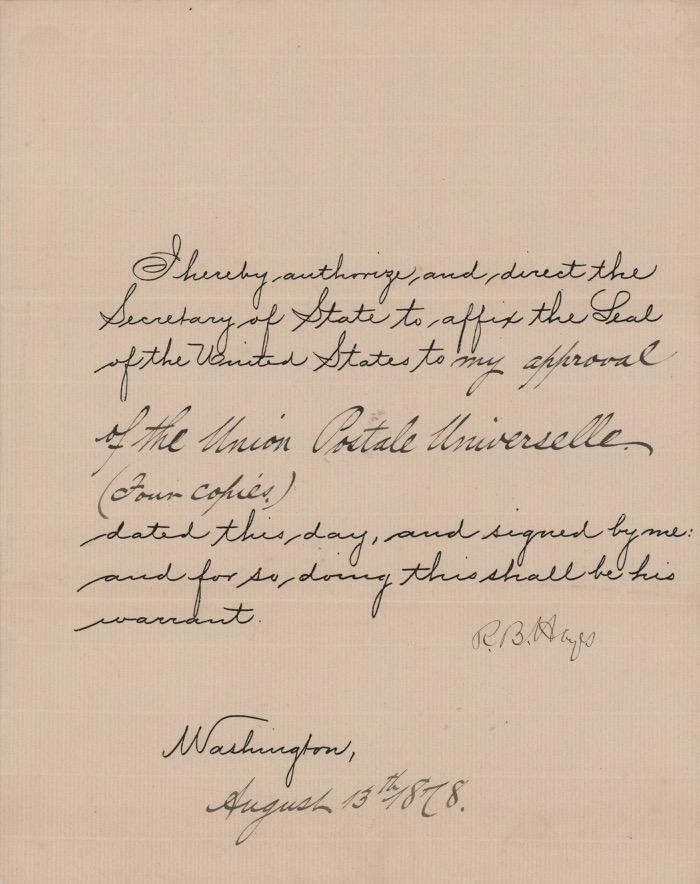 I hereby authorize and direct the
Secretary of State to affix the Seal
of the United States to my approval
of the Union Postale Universelle.
(Four copies.)
dated this day, and signed by me:
and for so doing this shall be his
warrant.
R. B. Hayes
Washington,
August 13th 1878.